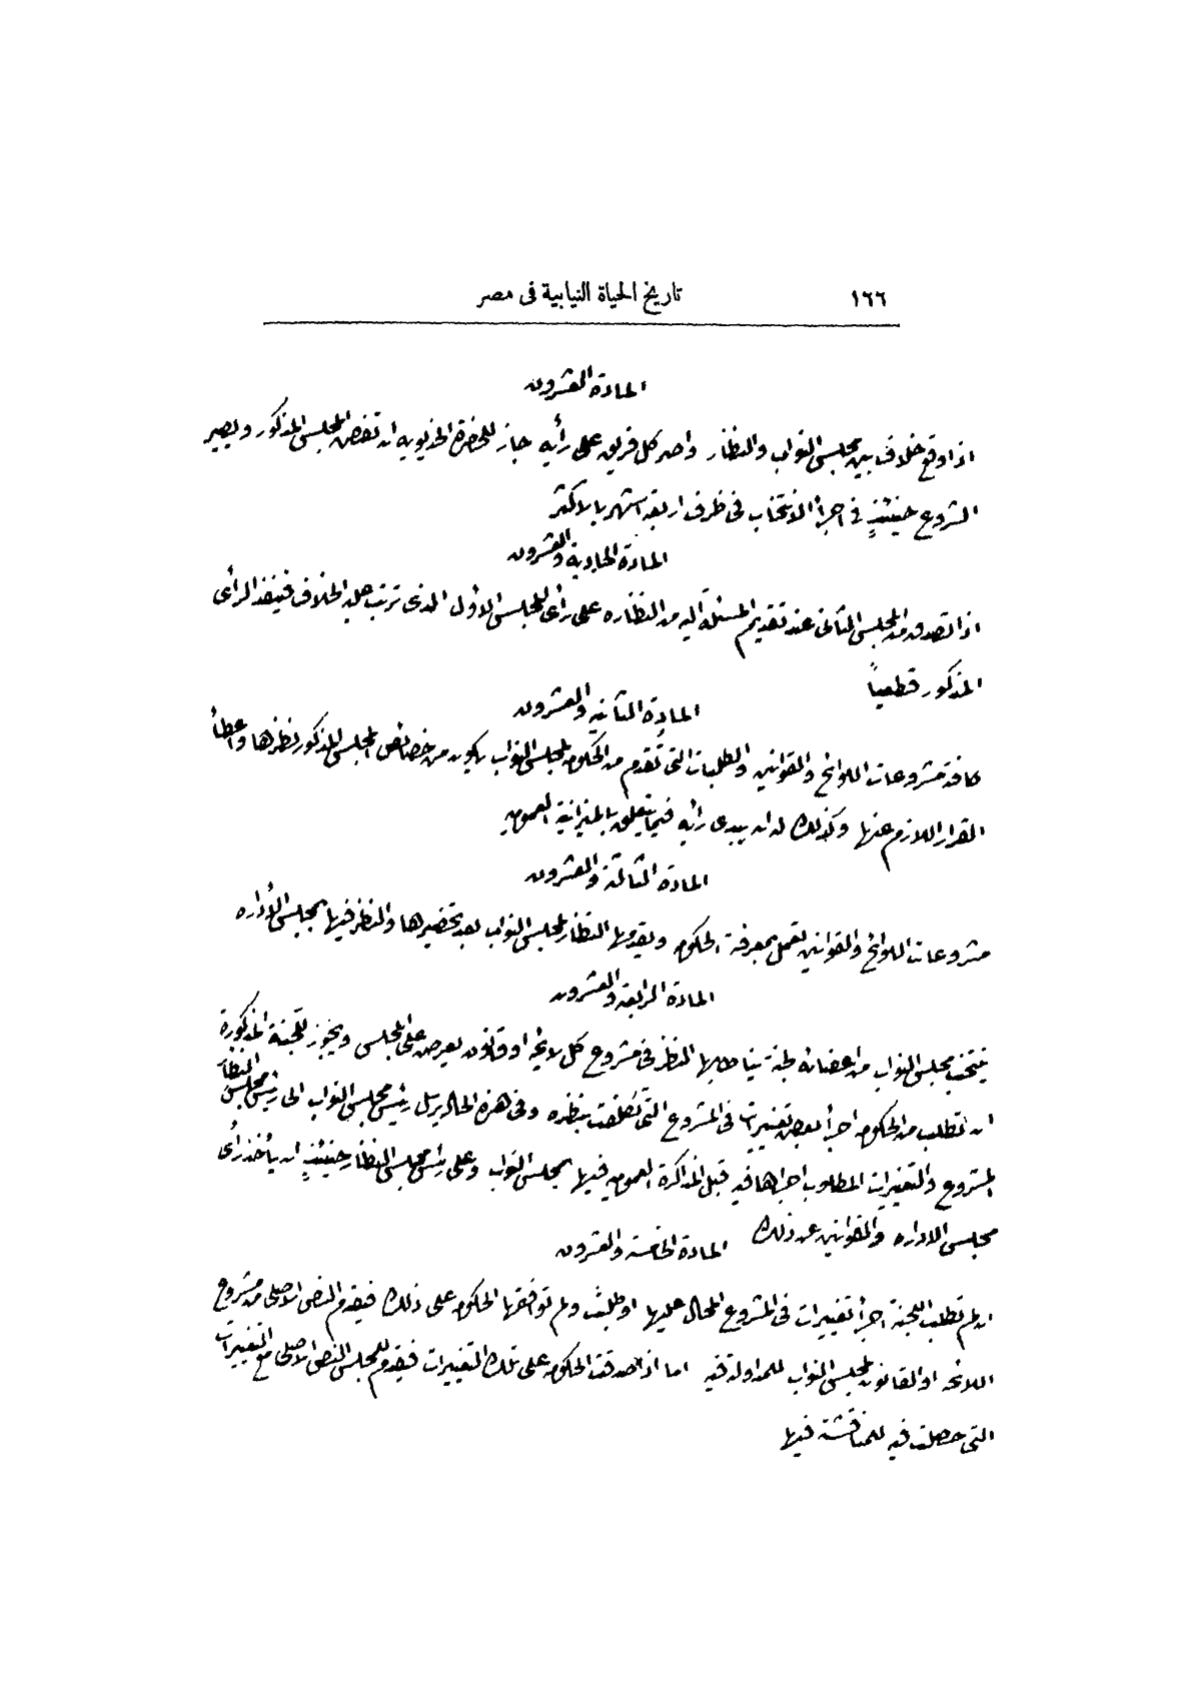 ١٦٦ تاريخ الحياة النيابية فى مصر
المادة العشرون
اذا وقع خلاف بين مجلس النواب والنظار واصر كل فريق على رأيه جاز للحضرة الخديويه ان تفض المجلس المذكور ويصير
الشروع حينئذٍ فى اجرأ الانتخاب فى ظرف اربعة اشهر بالاكثر
المادة الحادية والعشرون
اذا تصدق من المجلس الثانى عند تقديم المسئلة اليه من النظاره على رأى المجلس الاول الذى ترتب عليه الخلاف فينفذ الرأى
المذكور قطعياً
المادة الثانيه والعشرون
كافة مشروعات اللوائح والقوانين والطلبات التى تقدم من الحكومه لمجلس النواب يكون من خصائص المجلس المذكور نظرها واعطأ
القرار اللازم عنها وكذلك له ان يبدى رأيه فيما يتعلق بالميزانية العموميه
المادة الثالثة والعشرون
مشروعات اللوائح والقوانين تعمل بمعرفة الحكومه ويقدمها النظار لمجلس النواب بعد تحضيرها والنظر فيها بمجلس الأداره
المادة الرابعة والعشرون
ينتخب مجلس النواب من اعضائه لجنة يناط بها النظر فى مشروع كل لائحه او قانون يعرض على المجلس ويجوز للجنة المذكورة
ان تطلب من الحكومه اجرأ بعض تغييرات فى المشروع التى تكلفت بنظره وفى هذه الحال يرسل رئيس مجلس النواب الى رئيس مجلس النظار
المشروع والتغييرات المطلوب اجراها فيه قبل المذاكرة العموميه فيها بمجلس النواب وعلى رئيس مجلس النظار حينئذٍ ان يأخذ رأى
مجلس الاداره والقوانين عن ذلك
المادة الخامسة والعشرون
ان لم تطلب اللجنة اجرأ تغييرات فى المشروع المحال عليها او طلبت ولم توافقها الحكومه على ذلك فيقدم النص الاصلى من مشروع
اللائحه او القانون لمجلس النواب للمداولة فيه اما اذا صدقت الحكومه على تلك التغييرات فيقدم للمجلس النص الاصلى مع التغييرات
التى حصلت فيه للمناقشة فيها